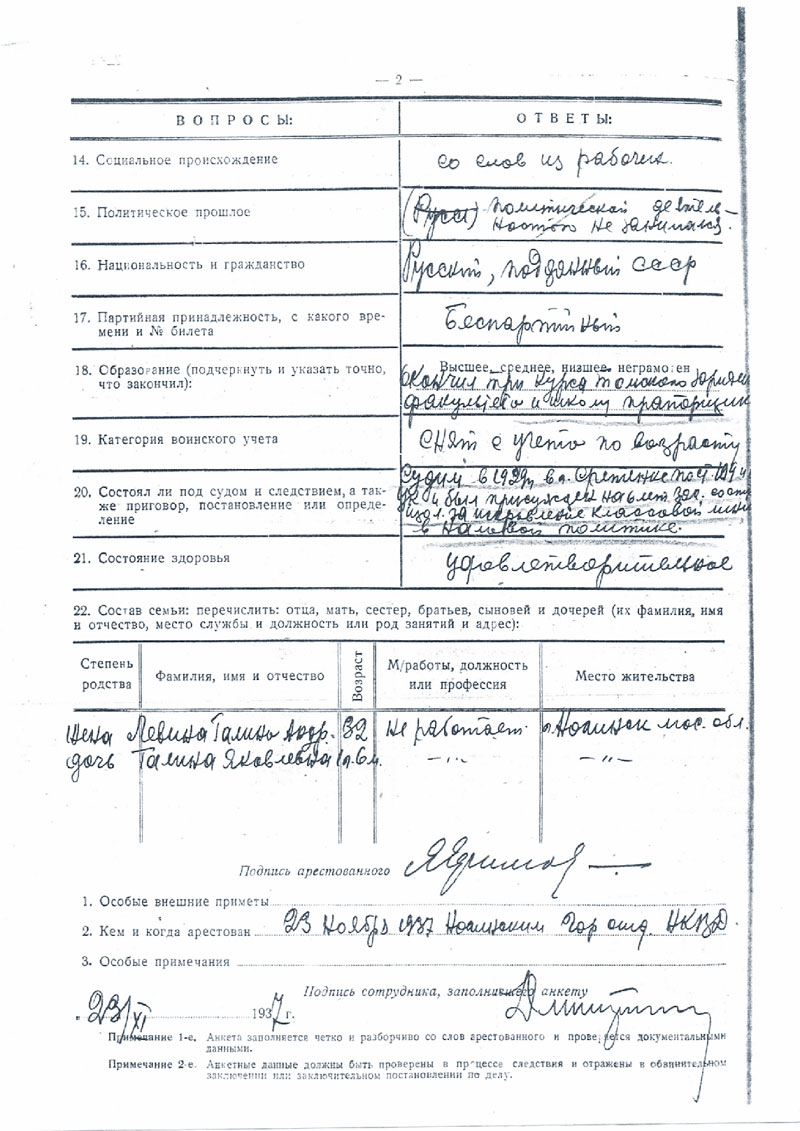 — 2 —
ВОПРОСЫ: ОТВЕТЫ:
14. Социальное происхождение со слов из рабочих.
15. Политическое прошлое (Русск) политической деятель-
ностью не занимался.
16. Национальность и гражданство Русский, подданный СССР
17. Партийная принадлежность, с какого вре-
мени и № билета Беспартийный
18. Образование (подчеркнуть и указать точно,
что закончил):
Высшее, среднее, низшее, неграмотен
окончил три курса томского
факультета и школу прапорщик
19. Категория воинского учета снят с учета по возрасту
20. Состоял ли под судом и следствием, а так-
же приговор, постановление или опреде-
ление
Судим в 1929г в г. Сретенске по ст. 109
УК и был присужден на 6 лет
за искривление классовой линии
в налоговой политике.
21. Состояние здоровья удовлетворительное
22. Состав семьи: перечислить: отца, мать, сестер, братьев, сыновей и дочерей (их фамилия, имя
и отчество, место службы и должность или род занятий и адрес):
Степень родства Фамилия, имя и отчество Возраст М/работы, должность или профессия Место жительства
жена Левина Галина Андр. 32 не работает
дочь Галина Яковлевна 1 г. 6 м. —„— —„—
Подпись арестованного
1. Особые внешние приметы
2. Кем и когда арестован 23 Ноября 1937 Гор отд. НКВД.
3. Особые примечания
Подпись сотрудника, заполнившего анкету
„ 23/XI 1937 г.
Примечание 1-е. Анкета заполняется четко и разборчиво со слов арестованного и проверяется документальными
данными.
Примечание 2-е. Анкетные данные должны быть проверены в процессе следствия и отражены в обвинительном
заключении или заключительном постановлении по делу.